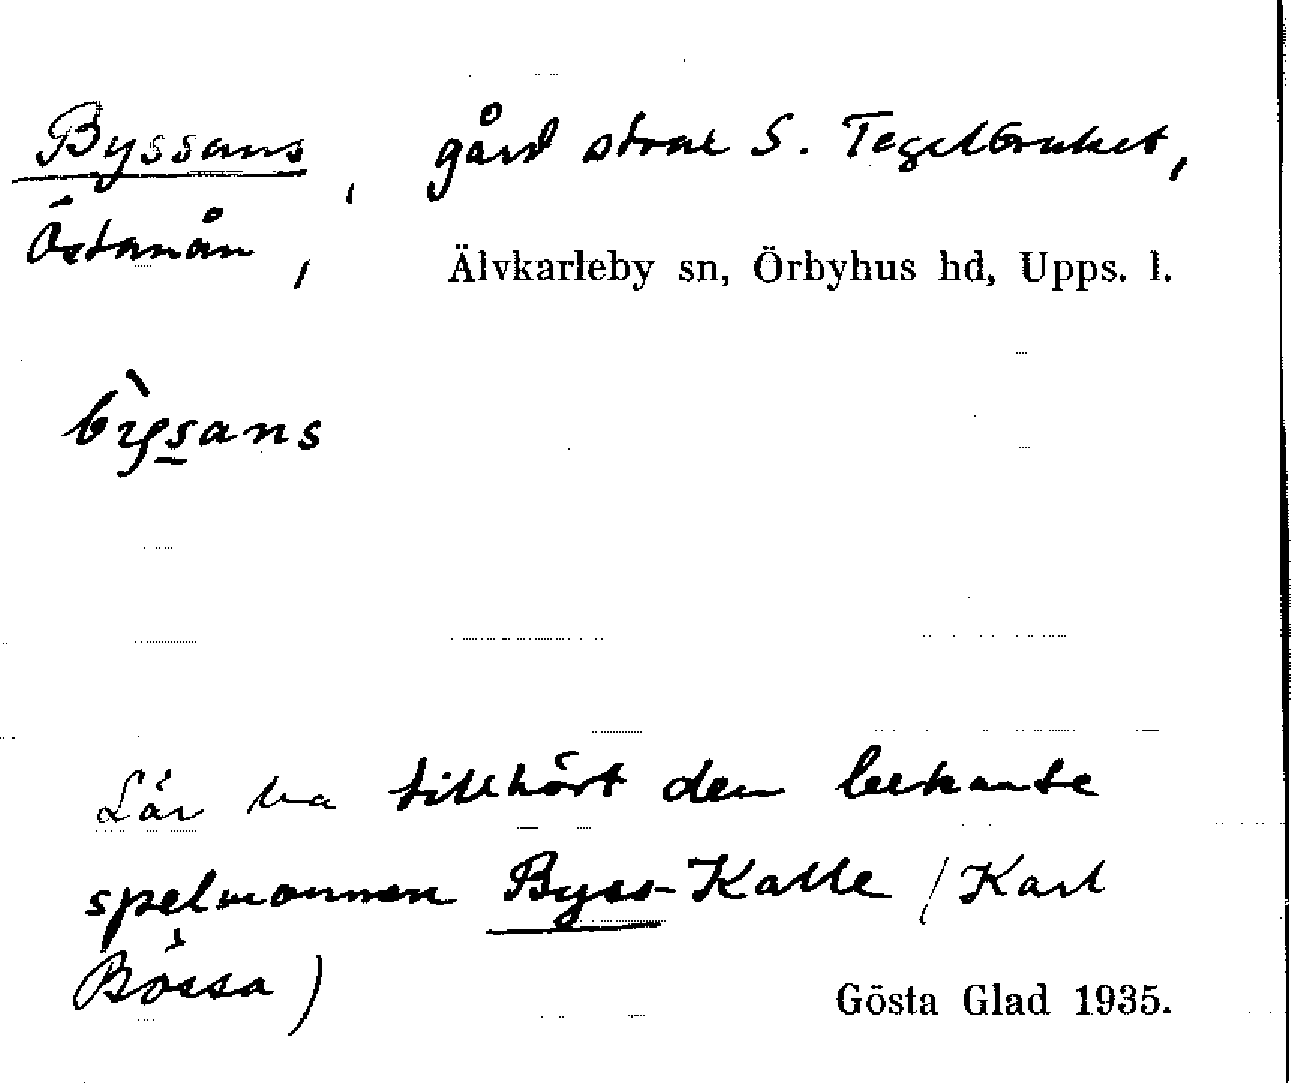 Byssans, gård strax S. Tegelbruket,
Östanån, Älvkarleby sn, Örbyhus hd, Upps. l.
bỳs̲ans
Lär ha tillhört den bekante
spelmannen Byss-Kalle (Karl
Bössa)
Gösta Glad 1935.